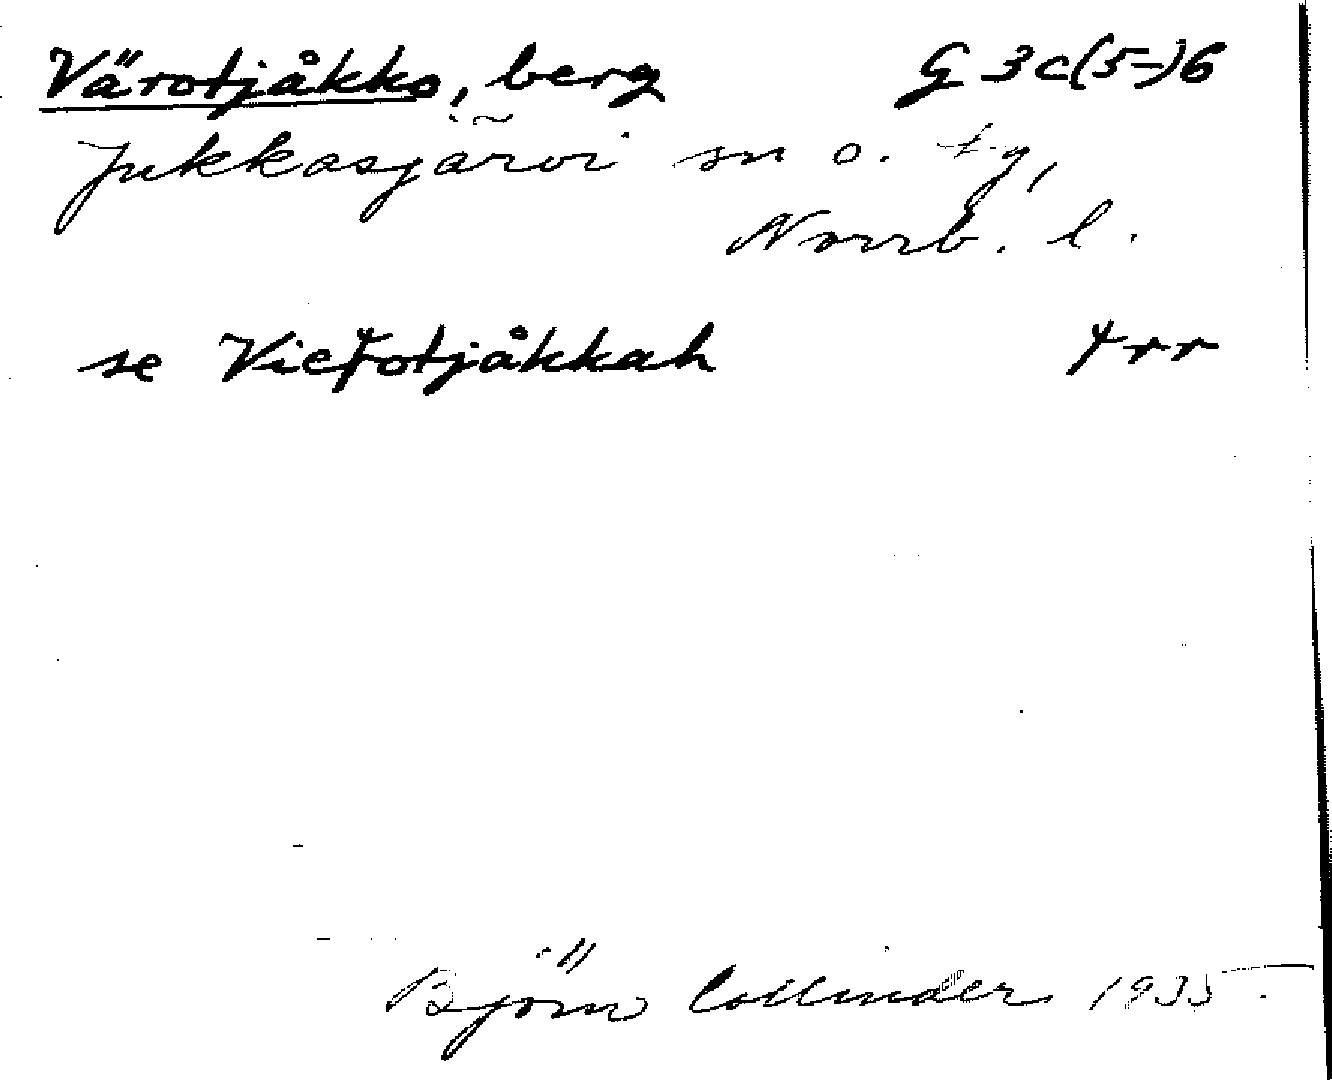 Värotjåkko, berg G 3c(5-)6
Jukkasjärvi sn o. tg,
Norrb. l.
se
Björn Collinder 1935.